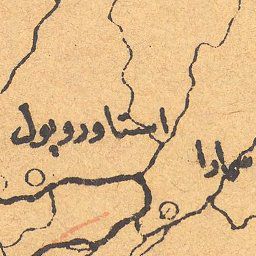 استاوروپول
سمارا